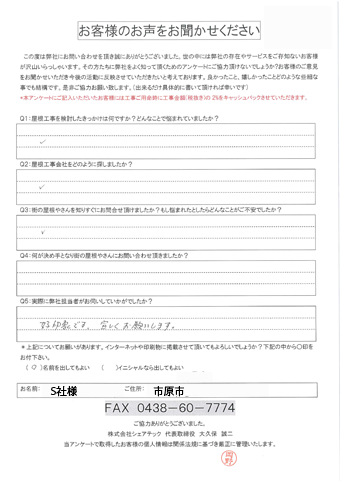 お客様のお声をお聞かせください
この度は弊社にお問い合わせを頂き誠にありがとうございました。世の中には弊社の存在やサービスをご存知ないお客様
が沢山いらっしゃいます。その方たちに弊社をよく知って頂くためのアンケートにご協力頂けないでしょうか？お客様のご意見
をお聞かせいただき今後の活動に反映させていただきたいと考えております。良かったこと、嬉しかったことどのような些細な
事でも結構です。是非ご協力お願い致します。（出来るだけ具体的に書いて頂ければ幸いです）
*本アンケートにご記入いただいたお客様には工事ご用命時に工事金額(税抜き)の2%をキャッシュバックさせていただきます。
Q1：屋根工事を検討したきっかけは何ですか？どんなことで悩まれていましたか？
✓
Q2：屋根工事会社をどのように探しましたか？
✓
Q3：街の屋根やさんを知りすぐにお問合せ頂けましたか？もし悩まれたとしたらどんなことがご不安でしたか？
✓
Q4：何が決め手となり街の屋根やさんにお問い合わせ頂きましたか？
Q5：実際に弊社担当者がお伺いしていかがでしたか？
好印象です。宜しくお願いします。
＊上記についてお願いがあります。インターネットや印刷物に掲載させて頂いてもよろしいでしょうか？下記の中から〇印をお付下さい。
（〇）名前を出してもよい　（　）イニシャルなら出してもよい
お名前：　S社様　ご住所：　市原市
FAX 0438-60-7774
ご協力ありがとうございました。
株式会社シェアテック 代表取締役 大久保 誠二
当アンケートで取得したお客様の個人情報は関係法規に基づき厳正に管理いたします。
岡野